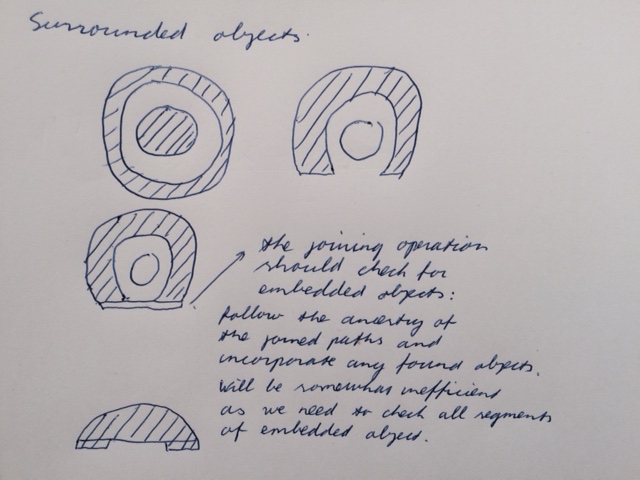 Surrounded objects.
the joining operation
should check for
embedded objects:
follow the ancestry of
the joined paths and
incorporate any found objects.
will be somewhat inefficient
as we need to check all segments
of embedded object.